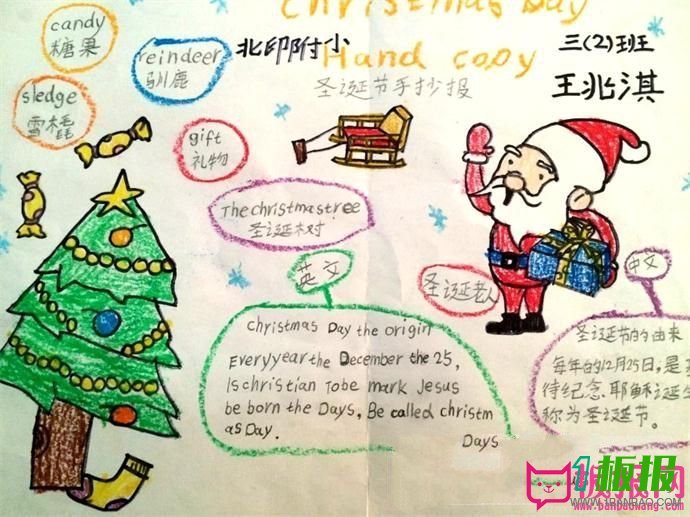 Christmas Day
Hand copy
圣诞节手抄报
北印附小
三(2)班
王兆淇
candy
糖果
reindeer
驯鹿
sledge
雪橇
gift
礼物
The christmas tree
圣诞树
英文
圣诞老人
中文
Christmas Day the origin
Every year the December the 25,
Is christian To be mark Jesus
be born the Days, Be called christm
as Day.
Days
圣诞节的由来
每年的12月25日,是
待纪念.耶稣诞生
称为圣诞节。
板报网
www.banbaowang.com